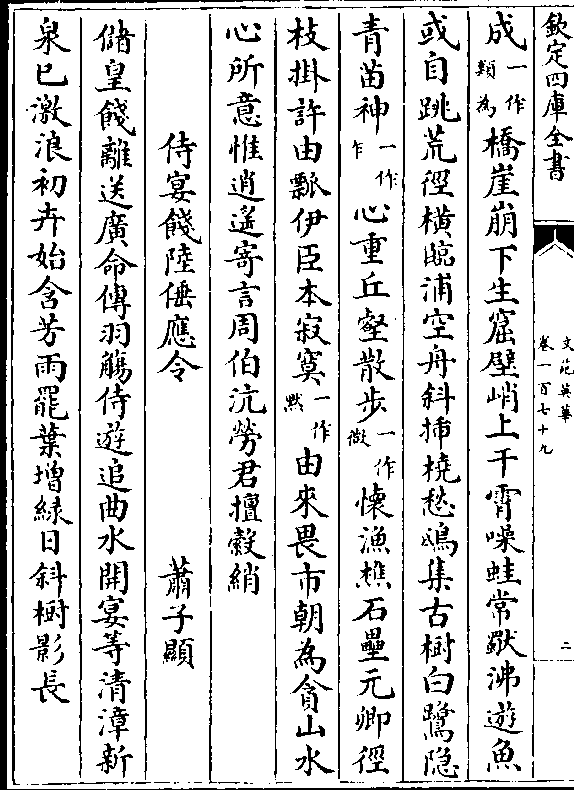 欽定四庫全書
文苑英華
卷一百七十九
二
成一作類為橋崖崩下生窟壁峭上干霄噪蛙常沸遊魚
或自跳荒徑橫臨浦空舟斜揷橈愁鴟集古樹白鷺隐
青苗神一作乍心重丘壑散步一作微懷漁樵石壘元卿徑
枝掛許由瓢伊臣本寂寞一作黙由來畏市朝為貪山水
心所意惟逍遙寄言周伯沆勞君擅縠綃
侍宴餞陸倕應令 蕭子顯
儲皇餞離送廣命傳羽觴侍遊追曲水開宴等清漳新
泉已激浪初卉始含芳雨罷葉增緑日斜樹影長